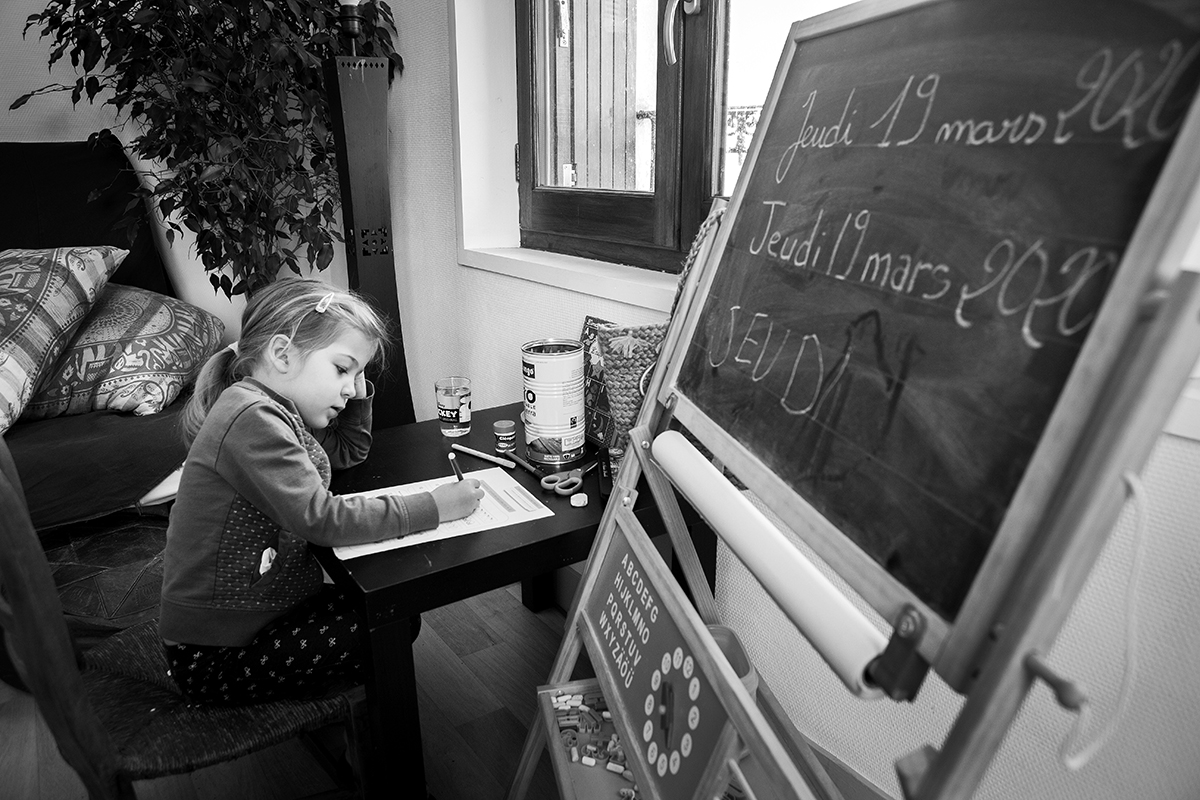 Jeudi 19 mars 2020
Jeudi 19 mars 2020
JEUDI
ABCDEFG
HIJKLMNO
PQRSTUV
WXYZÄÖÜ